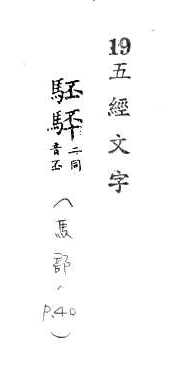 19五經文字
駓䮆二同音丕(馬部,P.40)